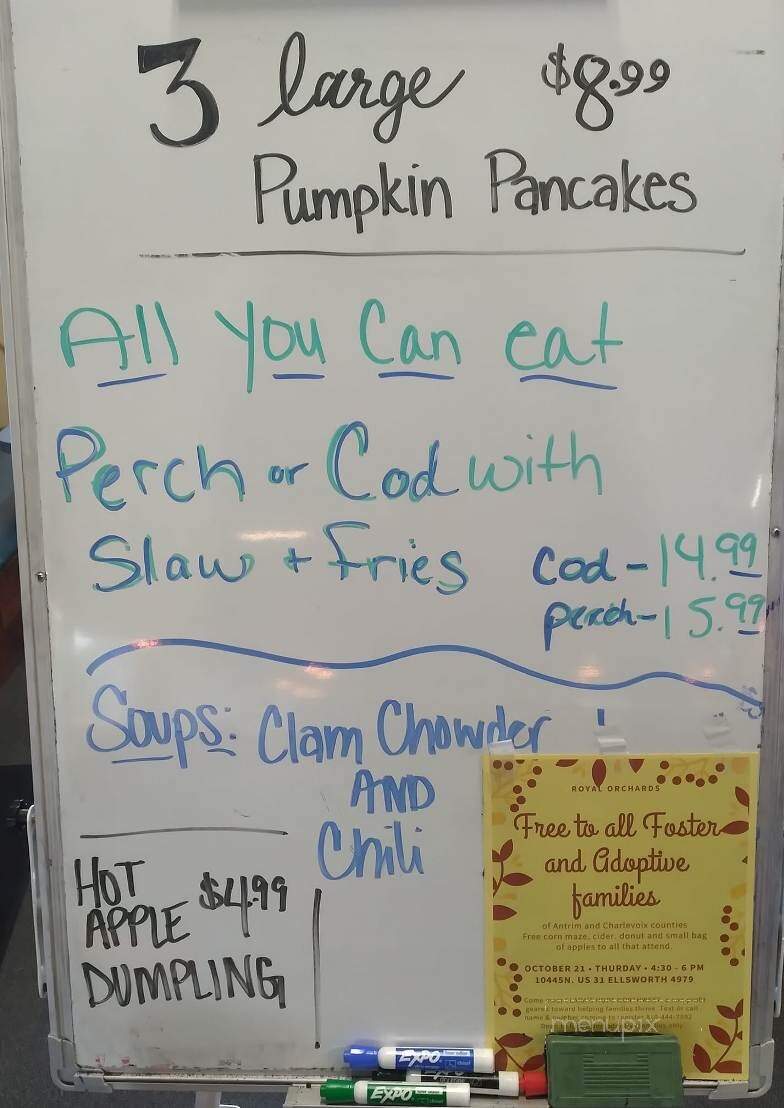 3 large $8.99
Pumpkin Pancakes
All You Can eat
Perch or Cod with
Slaw + Fries
Cod - 14.99
perch - 15.99
Soups: Clam Chowder
AND
Chili
HOT
APPLE $4.99
DUMPLING
ROYAL ORCHARDS
Free to all Foster
and Adoptive
families
of Antrim and Charlevoix counties
Free corn maze, cider, donut and small bag
of apples to all that attend.
OCTOBER 21 • THURDAY • 4:30 - 6 PM
10445N. US 31 ELLSWORTH 4979
Come
geared toward helping families thrive. Text or call
menupix
EXPO
EXPO
EXPO